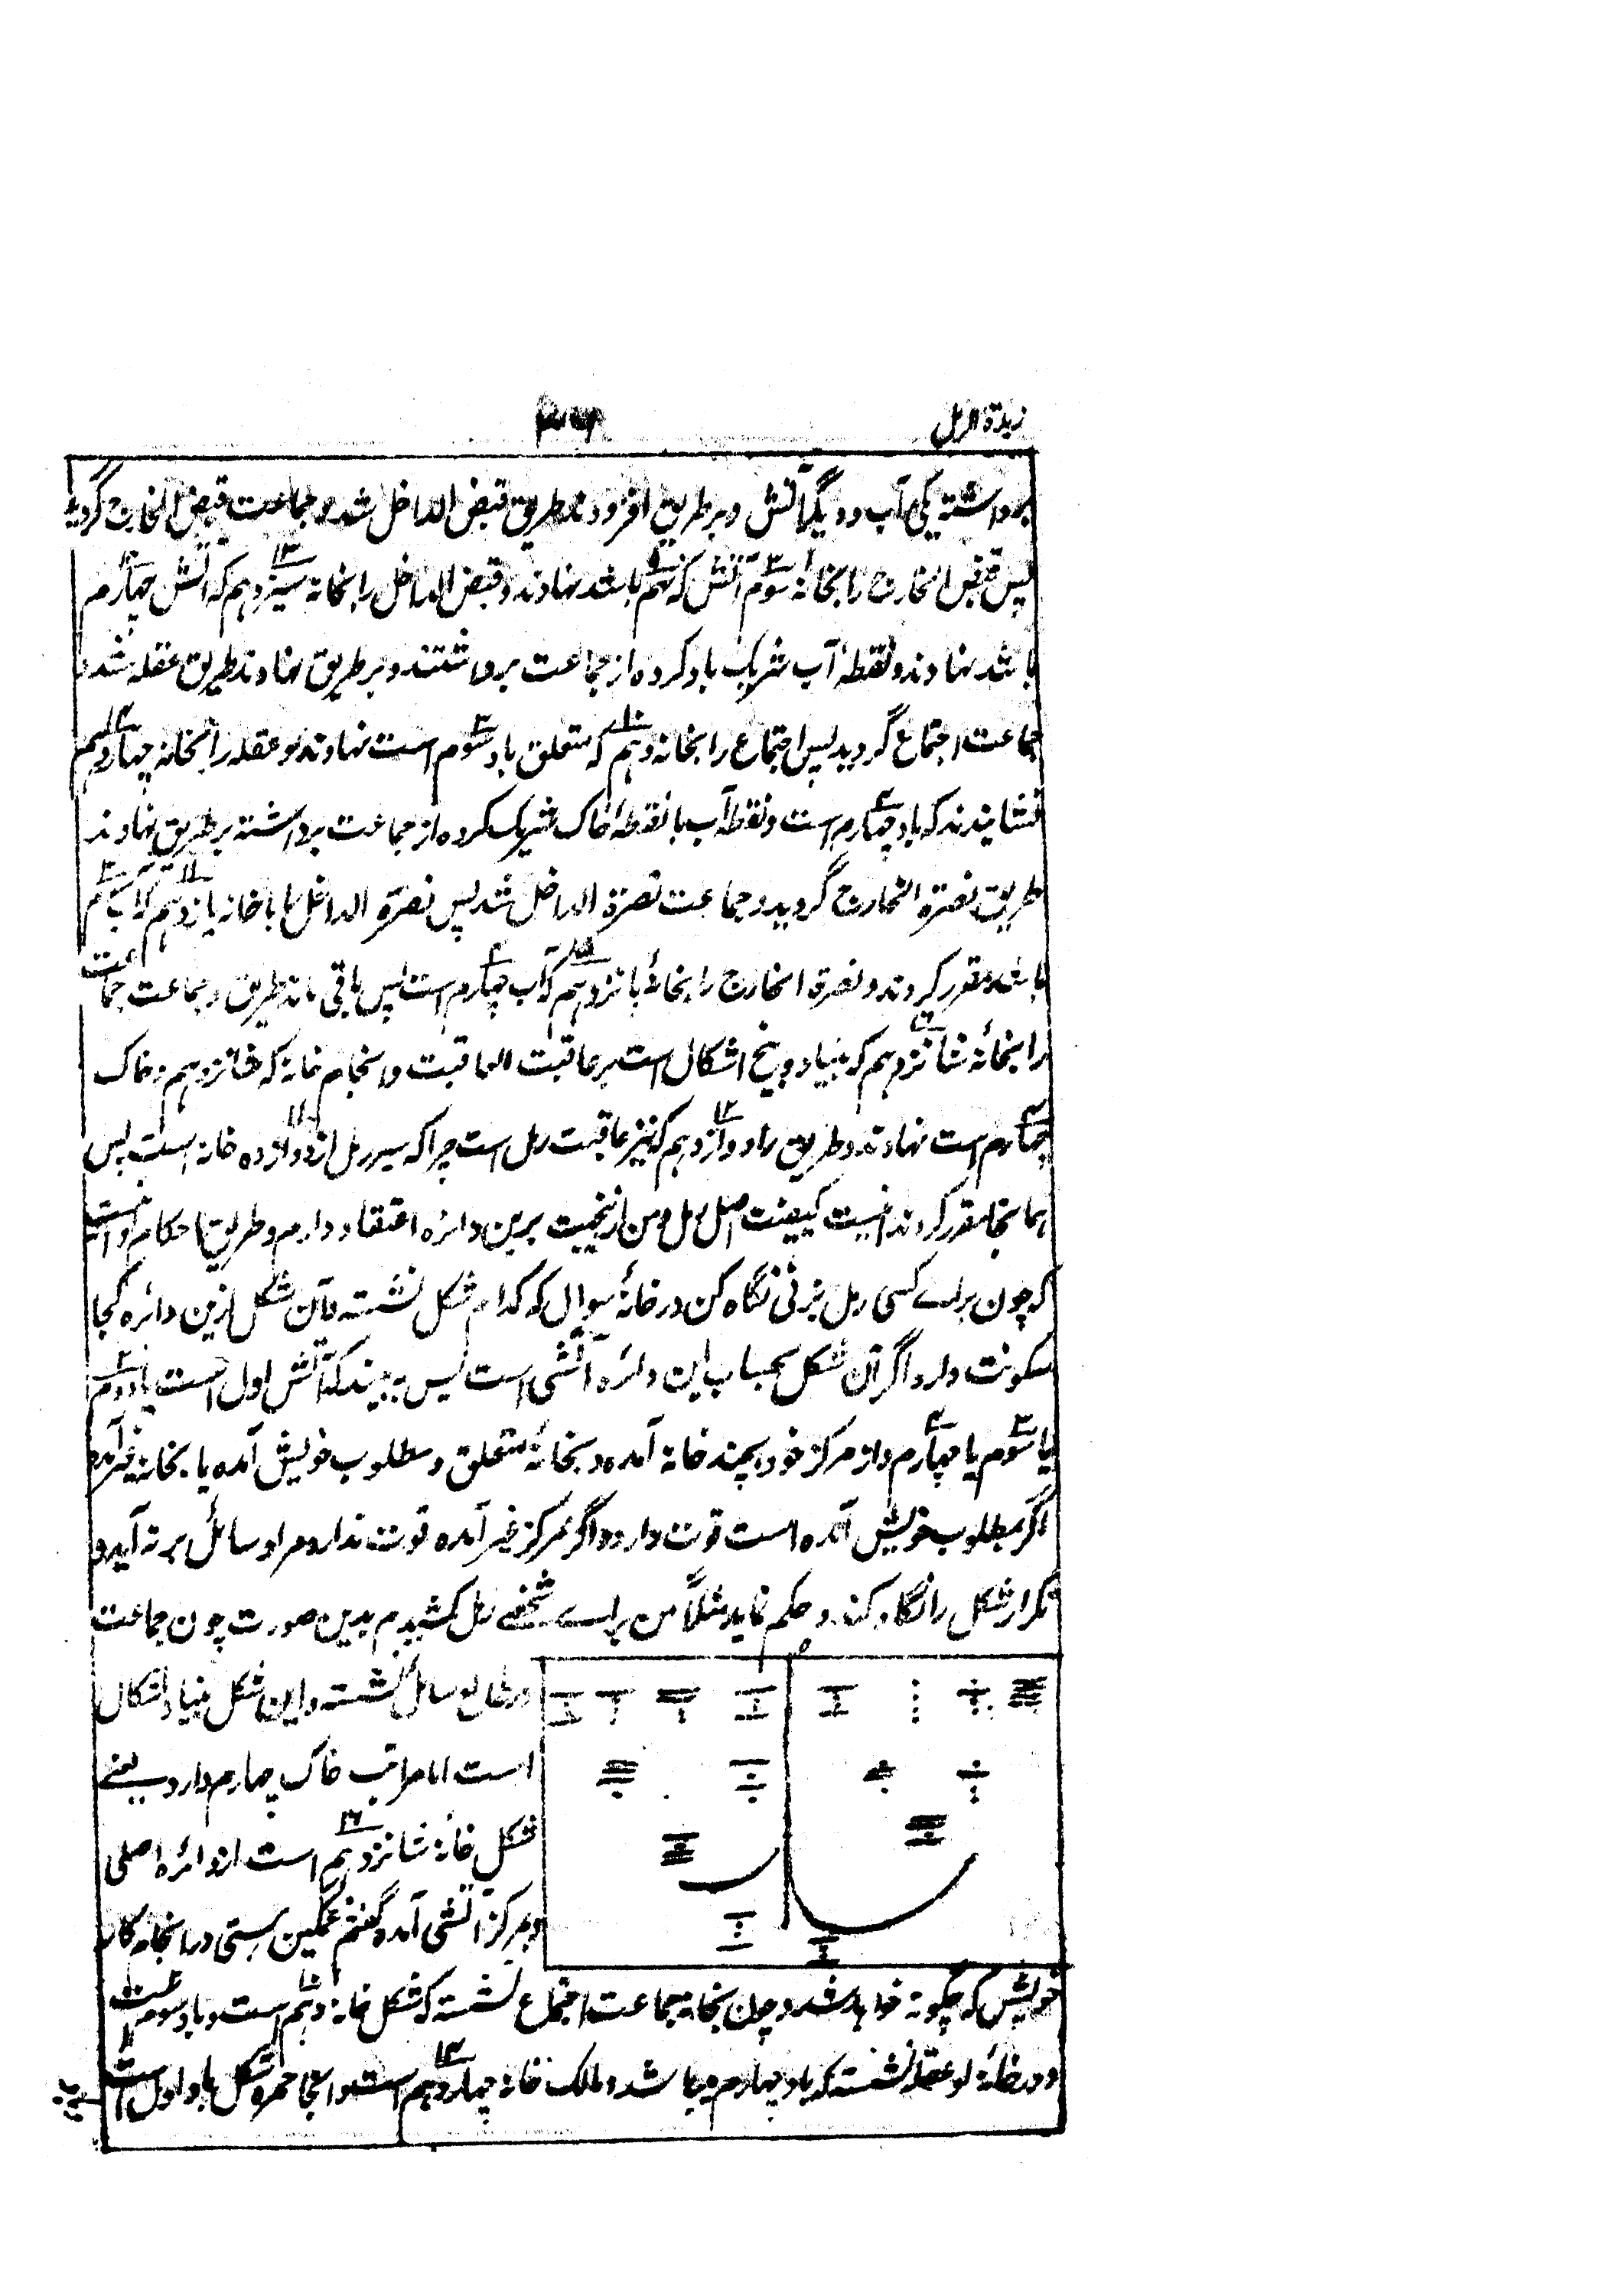 زبدة الرمل
برداشته یکی آب و دیگر آتش و بر طریق افزودند طریق قبض الداخل شد و جماعت قبض الخارج گردید
پس قبض الخارج را بخانهٔ سوم آتش که نهم باشد نهادند و قبض الداخل را بخانه سیزدهم که آتش چهارم
باشد نهادند و نقطهٔ آب شریک باد کرده از جماعت برداشتند و بر طریق نهادند طریق عقله شد و
جماعت اجتماع گردید پس اجتماع را بخانه دهم که متعلق باد سوم است نهادند و عقله را بخانه چهاردهم
نشانیدند که باد چهارم است و نقطه آب با نقطهٔ خاک شریک کرده از جماعت برداشته بر طریق نهادند
طریق نصرة الخارج گردید و جماعت نصرة الداخل شد پس نصرة الداخل را با خانه یازدهم که آب سوم
باشد مقرر کردند و نصرة الخارج را بخانهٔ پانزدهم که آب چهارم است پس باقی ماند طریق و جماعت جماعت
را بخانهٔ شانزدهم که بنیاد و بیخ اشکال است بر عاقبت العاقبت و انجام خانه که شانزدهم و خاک
چهارم است نهادند و طریق را دوازدهم که نیز عاقبت رمل است چرا که سیر رمل از دوازده خانه است پس
همانجا مقرر کردند اینست کیفیت اصل رمل و من ازینجهت برین دائره اعتقاد دارم و طریق احکام او اینست
که چون برای کسی رمل بزنی نگاه کن در خانهٔ سوال که کدام شکل نشسته و آن شکل ازین دائره کجا
سکونت دارد اگر آن شکل بحساب این دائره آتشی است پس به بیند که آتش اول است یا دوم
یا سوم یا چهارم و از مرکز خود بچند خانه آمده و بخانهٔ متعلق و مطلوب خویش آمده یا بخانه غیر آمده
اگر بمطلوب خویش آمده است قوت دارد و اگر بمرکز غیر آمده قوت ندارد و مراد سائل بر نه آید و
تکرار شکل را نگاه کند و حکم نماید مثلاً من برای شخصے رمل کشیدم بدین صورت چون جماعت
در طالع سائل نشسته و این شکل بنیاد اشکال
است اما مراتب خاک چهارم دارد یعنے
شکل خانهٔ شانزدهم است از دائره اصلی
و بمرکز آتشی آمده گفتم غمگین هستی در انجام کار
خویش که چگونه خواهد شد و چون بخانه جماعت اجتماع نشسته که شکل خانه دهم است و باد سوم است
و در خانهٔ او عقله نشسته که باد چهارم میباشد و مالک خانه چهاردهم است و اینجا حمره شکل باد اول است